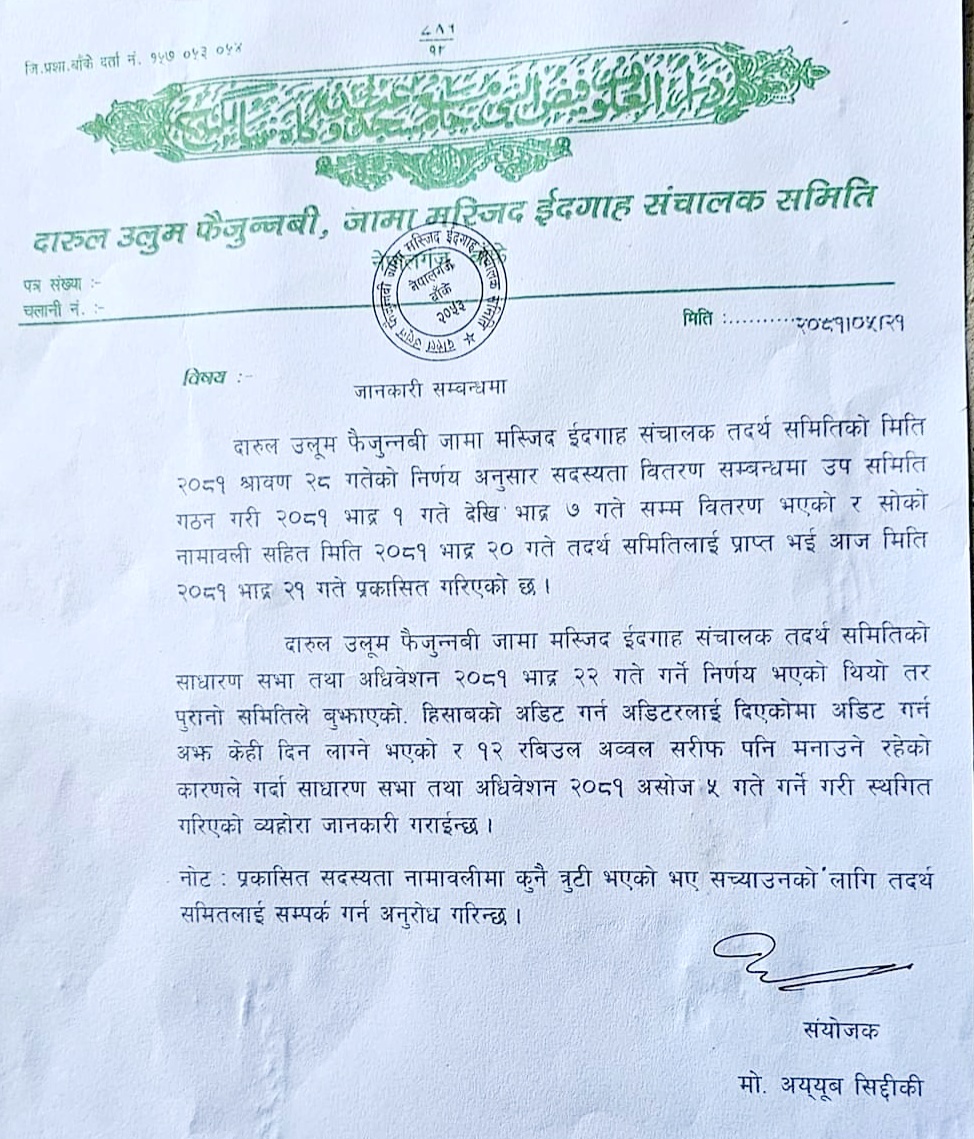 ७८६
९२
जि.प्रशा.बाँके दर्ता नं. १५७ ०५३ ०५४
दारुल उलुम फैजुन्नबी, जामा मस्जिद ईदगाह संचालक समिति
नेपालगंज
पत्र संख्या :-
चलानी नं. :-
नेपालगंज
बाँके
२०५३
मिति :..........२०८१।०५।२१
विषय :-
जानकारी सम्बन्धमा
दारुल उलूम फैजुन्नबी जामा मस्जिद ईदगाह संचालक तदर्थ समितिको मिति
२०८१ श्रावण २८ गतेको निर्णय अनुसार सदस्यता वितरण सम्बन्धमा उप समिति
गठन गरी २०८१ भाद्र १ गते देखि भाद्र ७ गते सम्म वितरण भएको र सोको
नामावली सहित मिति २०८१ भाद्र २० गते तदर्थ समितिलाई प्राप्त भई आज मिति
२०८१ भाद्र २१ गते प्रकासित गरिएको छ ।
दारुल उलूम फैजुन्नबी जामा मस्जिद ईदगाह संचालक तदर्थ समितिको
साधारण सभा तथा अधिवेशन २०८१ भाद्र २२ गते गर्ने निर्णय भएको थियो तर
पुरानो समितिले बुझाएको. हिसाबको अडिट गर्न अडिटरलाई दिएकोमा अडिट गर्न
अझ केही दिन लाग्ने भएको र १२ रबिउल अव्वल सरीफ पनि मनाउने रहेको
कारणले गर्दा साधारण सभा तथा अधिवेशन २०८१ असोज ५ गते गर्ने गरी स्थगित
गरिएको व्यहोरा जानकारी गराईन्छ ।
नोट : प्रकासित सदस्यता नामावलीमा कुनै त्रुटी भएको भए सच्याउनको लागि तदर्थ
समितलाई सम्पर्क गर्न अनुरोध गरिन्छ ।
संयोजक
मो. अय्यूब सिद्दीकी